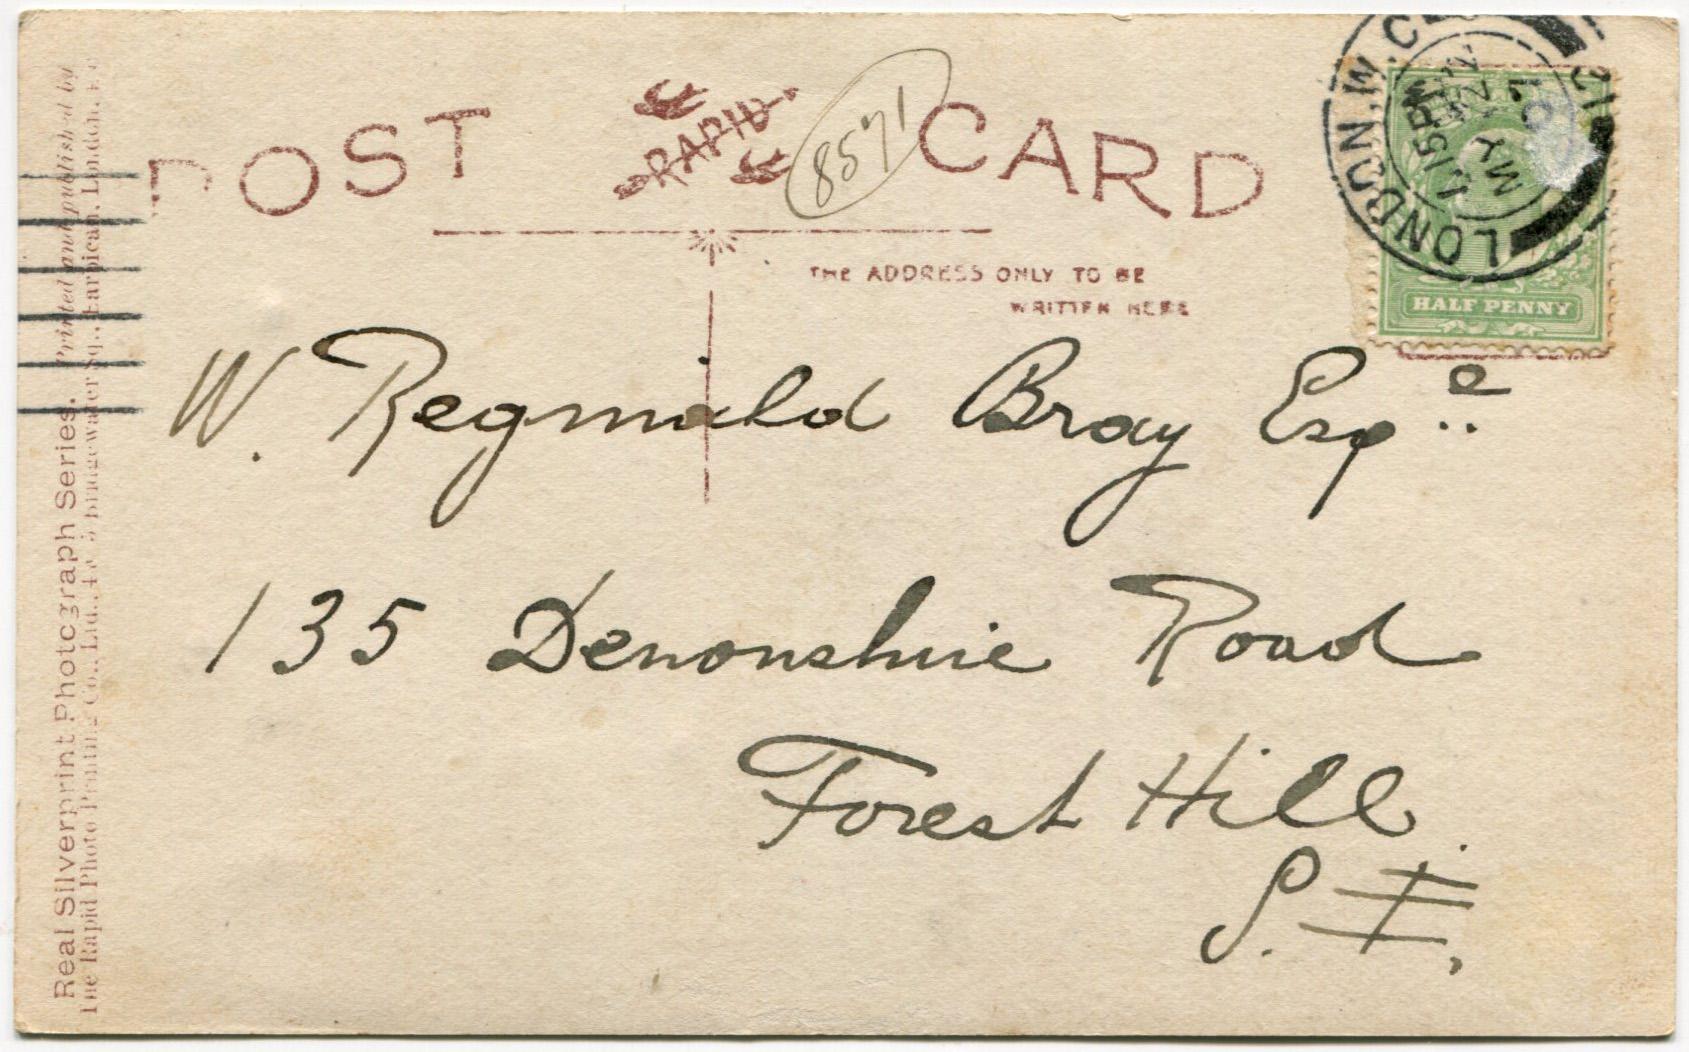 POST RAPID CARD
8571
THE ADDRESS ONLY TO BE
WRITTEN HERE
LONDON. W.C
1.15 PM
MY
HALF PENNY
W. Reginald Bray Esqre
135 Devonshire Road
Forest Hill.
S. E.
Real Silverprint Photograph Series. Printed and published by
The Rapid Photo Printing Co., Ltd., Bridgewater Sq., Barbican, London, E.C